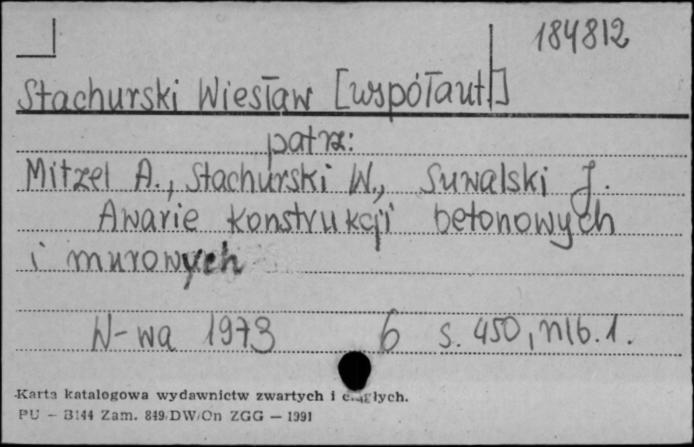 184812
Stachurski Wiesław [współaut.]
patrz:
Mitzel A., Stachurski W., Suwalski J.
Awarie konstrukcji betonowych
i murowych
W-wa 1973 6 s. 450, nlb. 1.
Karta katalogowa wydawnictw zwartych i ciągłych.
PU – B144 Zam. 849/DW/On ZGG – 1991